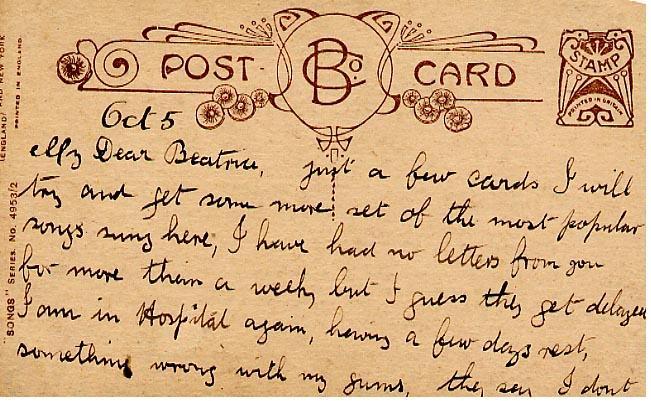 POST CARD
B Co
STAMP
PRINTED IN BRITAIN
(ENGLAND) AND NEW YORK
PRINTED IN ENGLAND.
"SONGS" SERIES. No. 4953/2
Oct 5
My Dear Beatrice, just a few cards I will
try and get some more set of the most popular
songs sung here, I have had no letters from you
for more than a week, but I guess they get delayed
I am in Hospital again, having a few days rest,
something wrong with my gums, they say I dont